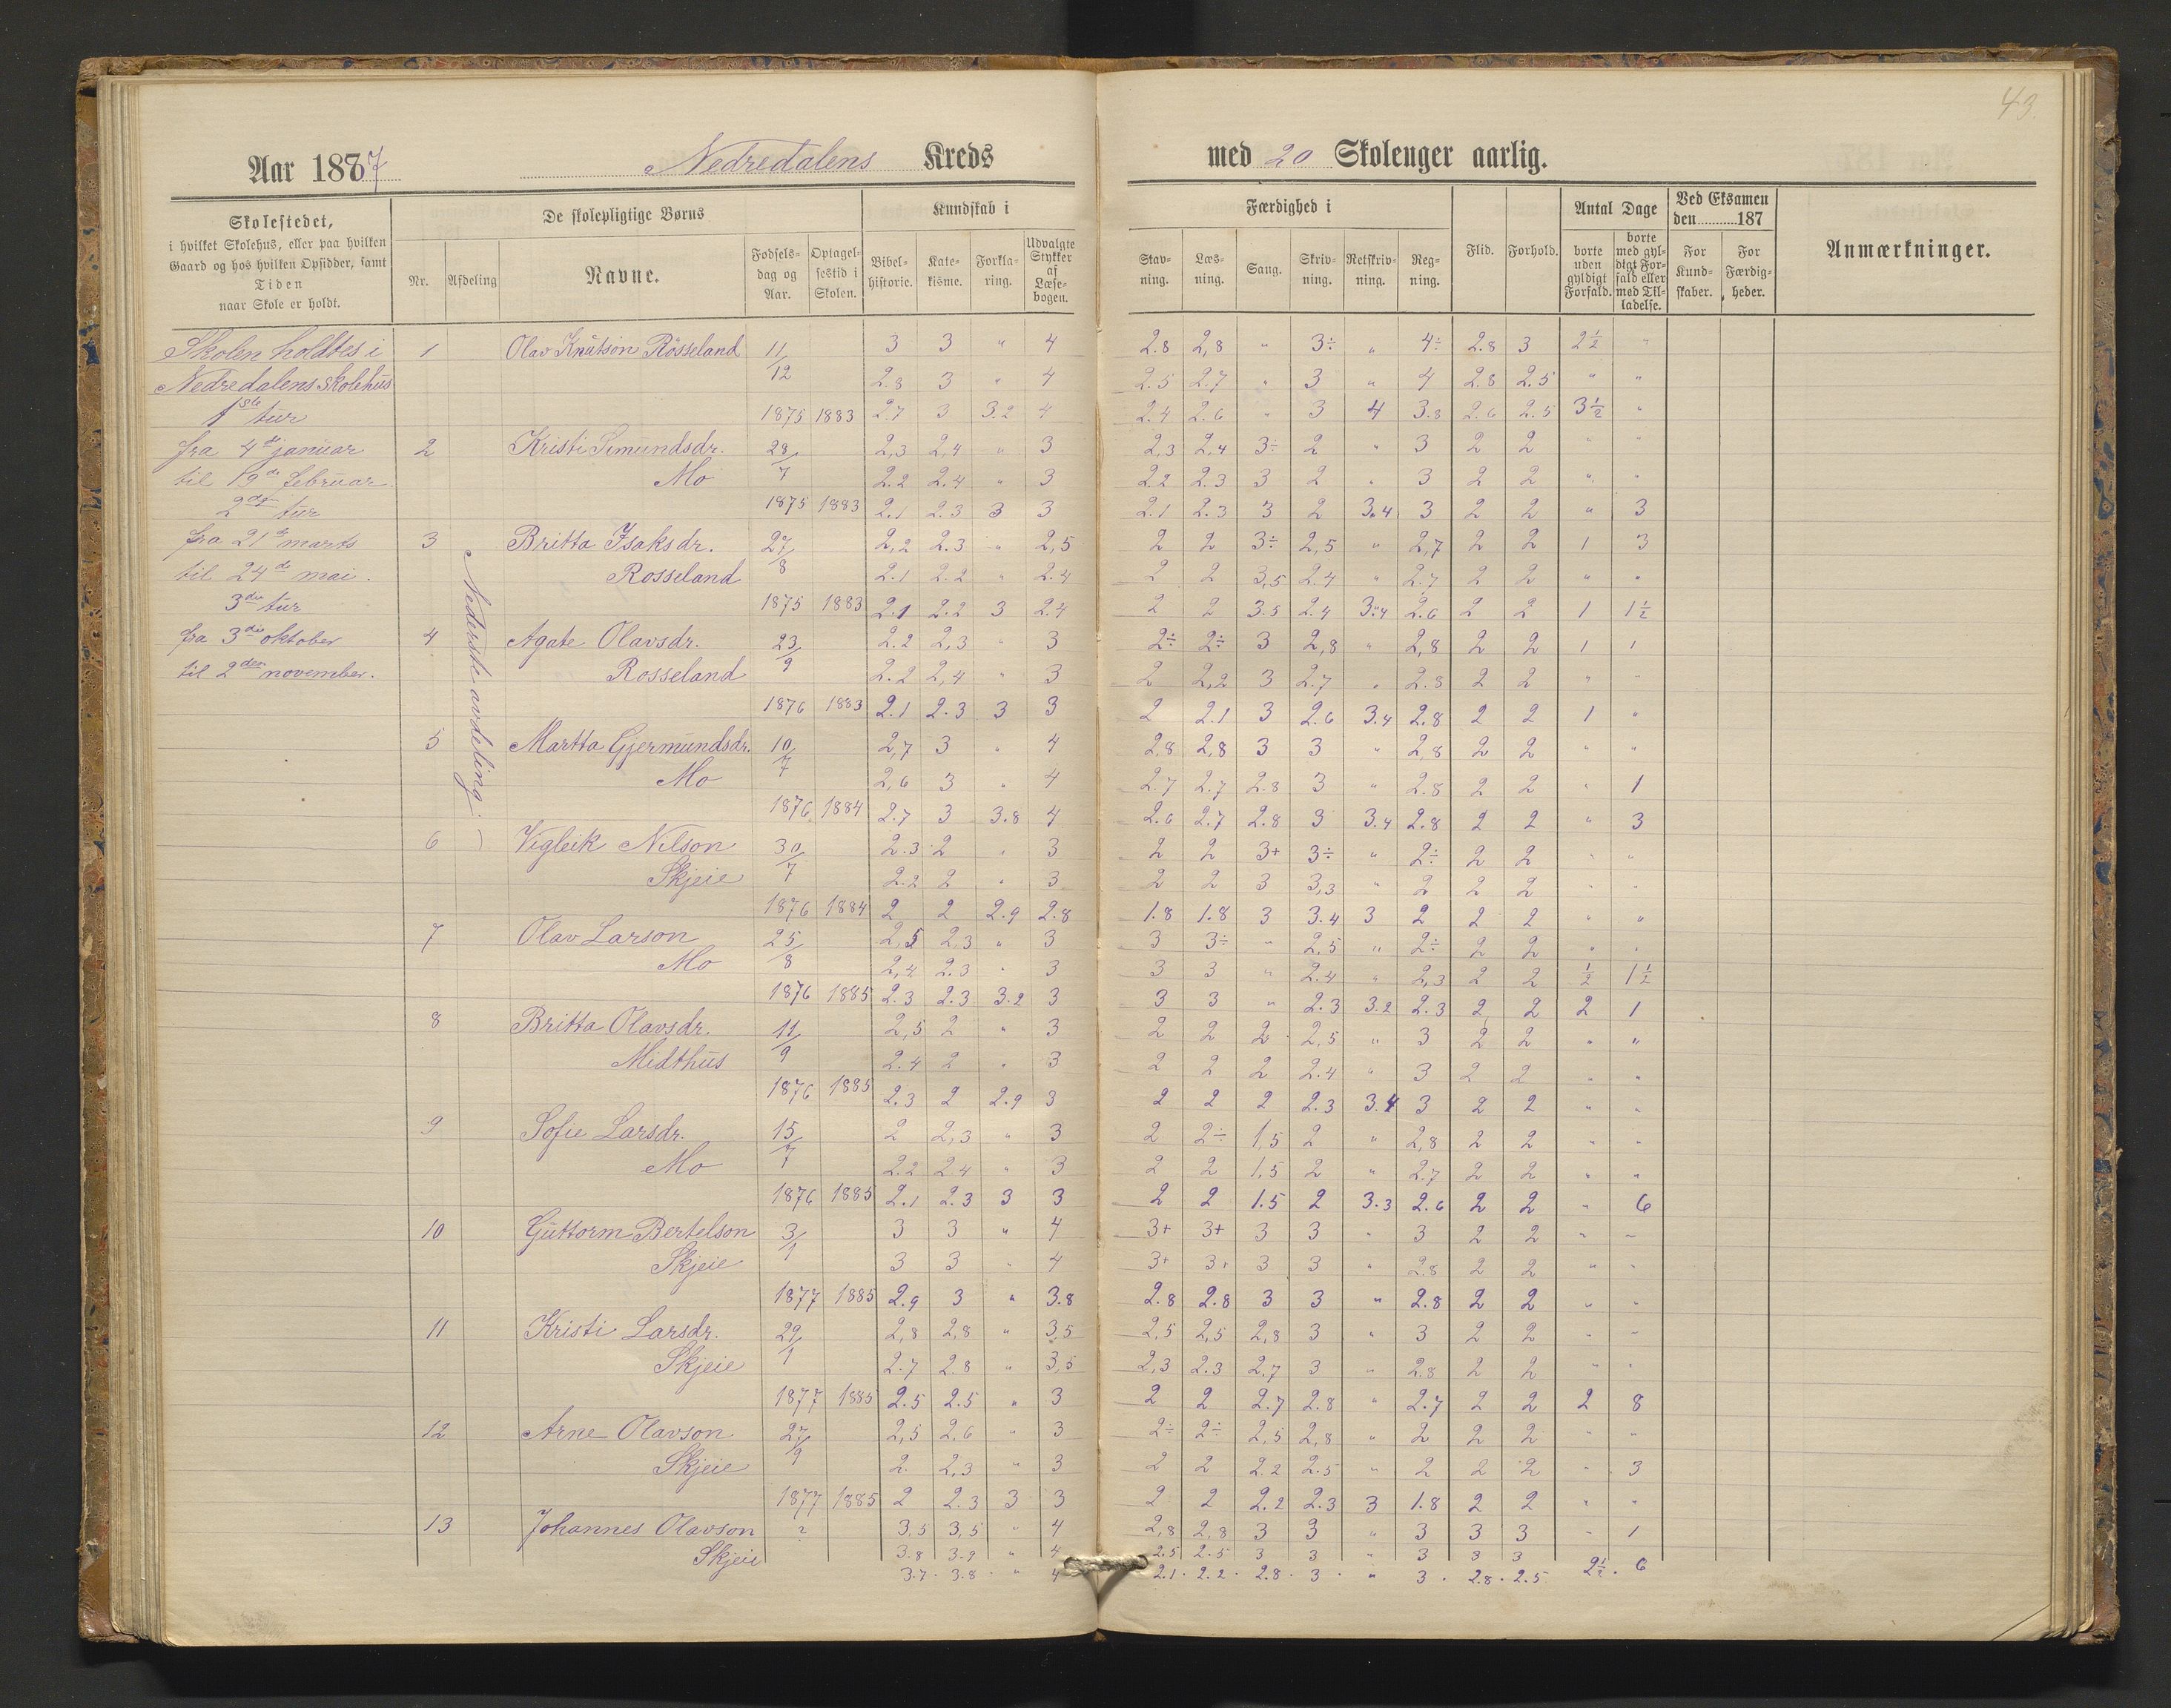 43.
Aar 1887 Nedredalens Kreds med 20 Skoleuger aarlig.
Skolestedet, i hvilket Skolehus, eller paa hvilken Gaard og hos hvilken Opsidder, samt Tiden naar Skole er holdt.
De skolepligtige Børns
Nr. Afdeling Navne. Fødselsdag og Aar. Optagelsestid i Skolen.
Kundskab i
Bibelhistorie. Katekisme. Forklaring. Udvalgte Stykker af Læsebogen.
Færdighed i
Stavning. Læsning. Sang. Skrivning. Retskrivning. Regning.
Flid. Forhold.
Antal Dage
borte uden gyldigt Forfald. borte med gyldigt Forfald eller med Tilladelse.
Ved Eksamen den 187
For Kundskaber. For Færdigheder.
Anmærkninger.
Skolen holdtes i
Nedredalens skolehus
1ste tur
fra 4de januar
til 19de februar
2den tur
fra 21de marts
til 24de mai.
3die tur
fra 3die oktober
til 2den november.
Nederste avdeling.
1 Olav Knutson Rosseland 11/12 3 3 " 4 2.8 2,8 " 3÷ " 4÷ 2.8 3 2½ "
2.8 3 " 4 2.5 2.7 " 3 " 4 2.8 2.5 " "
1875 1883 2.7 3 3.2 4 2.4 2.6 " 3 4 3.8 2.6 2.5 3½ "
2 Kristi Simundsdr. 28/7 2,3 2,4 " 3 2,3 2,4 3÷ 2 " 3 2 2 " "
Mo 2.2 2.4 " 3 2.2 2.3 3 2 " 3 2 2 " "
1875 1883 2.1 2.3 3 3 2.1 2.3 3 2 3.4 3 2 2 " 3
3 Britta Isaksdr. 27/8 2,2 2.3 " 2,5 2 2 3÷ 2,5 " 2,7 2 2 1 3
Rosseland 2.1 2.2 " 2.4 2 2 3,5 2.4 " 2.7 2 2 " "
1875 1883 2.1 2.2 3 2.4 2 2 3.5 2.4 3.4 2.6 2 2 1 1½
4 Agate Olavsdr. 23/9 2.2 2,3 " 3 2÷ 2÷ 3 2,8 " 2,8 2 2 1 1
Rosseland 2.2 2,4 " 3 2 2,2 3 2.7 " 2.8 2 2 " "
1876 1883 2.1 2.3 3 3 2 2.1 3 2.6 3.4 2.8 2 2 1 "
5 Martta Gjermundsdr. 10/7 2,7 3 " 4 2,8 2,8 3 3 " 2,8 2 2 " "
Mo 2,6 3 " 4 2.7 2.7 2.8 3 " 2.8 2 2 " 1
1876 1884 2.7 3 3.8 4 2.6 2.7 2.8 3 3.4 2.8 2 2 " 3
6 Vigleik Nilson 30/7 2.3 2 " 3 2 2 3+ 3÷ " 2÷ 2 2 " "
Skjeie 2.2 2 " 3 2 2 3 3,3 " 2 2 2 " "
1876 1884 2 2 2.9 2.8 1.8 1.8 3 3.4 3 2 2 2 " "
7 Olav Larson 25/8 2,5 2,3 " 3 3 3÷ " 2,5 " 2÷ 2 2 " "
Mo 2,4 2.3 " 3 3 3 " 2.4 " 2,3 2 2 ½ 1½
1876 1885 2.3 2.3 3.2 3 3 3 " 2.3 3.2 2.3 2 2 2 1
8 Britta Olavsdr. 11/9 2,5 2 " 3 2 2 2 2,5 " 3 2 2 " "
Midthus 2.4 2 " 3 2 2 2 2.4 " 3 2 2 " "
1876 1885 2.3 2 2.9 3 2 2 2 2.3 3.4 3 2 2 " "
9 Sofie Larsdr. 15/7 2 2,3 " 3 2 2÷ 1,5 2 " 2,8 2 2 " "
Mo 2.2 2.4 " 3 2 2 1,5 2 " 2.7 2 2 " "
1876 1885 2.1 2.3 3 3 2 2 1.5 2 3.3 2.6 2 2 " 6
10 Guttorm Bertelson 3/1 3 3 " 4 3+ 3+ 3 3 " 3 2 2 " "
Skjeie 3 3 " 4 3+ 3+ 3 3 " 2.8 2 2 " "
1877 1885 2.9 3 " 3.8 2.8 2.8 3 3 " 2.8 2 2 " "
11 Kristi Larsdr. 22/1 2,8 2,8 " 3,5 2,5 2,5 2,8 3 " 3 2 2 " "
Skjeie 2.7 2.8 " 3,5 2,3 2.3 2,7 3 " 2.8 2 2 " "
1877 1885 2.5 2.5 " 3 2 2 2.7 2.8 " 2.7 2 2 2 8
12 Arne Olavson 27/9 2,5 2,6 " 3 2÷ 2÷ 2,5 2,8 " 2 2 2 " "
Skjeie 2. 2,3 " 3 2 2 2.2 2.5 " 2 2 2 " 3
1877 1885 2 2.3 3 3 2 2 2.2 2.3 3 1.8 2 2 " "
13 Johannes Olavson ? 3,5 3,5 " 4 2,8 2,8 3 3 " 3 3 3 " 1
Skjeie 3.8 3.9 " 4 2.5 2.5 3 3 " 3 3 3
3.7 3.8 " 4 2.1 2.2 2.8 3 " 3 2.8 2.5 2½ 6